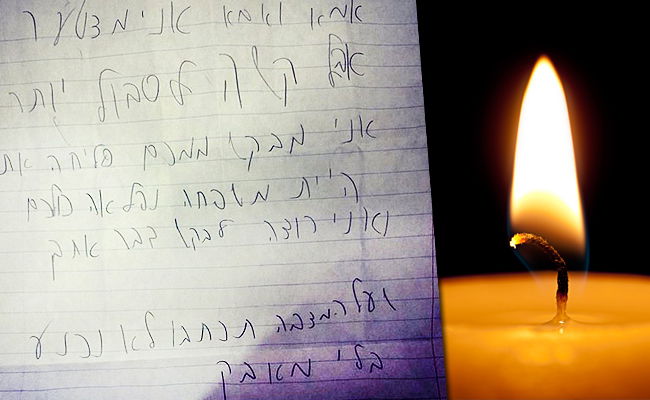 אמא ואבא אני מצטער
אבל קשה לסבול יותר
אני מבקש ממכם סליחה את
היית משפחה נפלאה כולם
ואני רוצה לבקש דבר אחד
ועל המצבה תכתבו לא נכנע
בלי מאבק